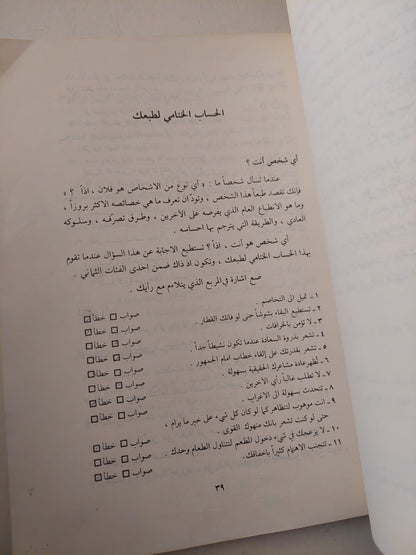 الحساب الختامي لطبعك
أي شخص أنت ؟
عندما تسأل شخصاً ما : « أي نوع من الاشخاص هو فلان ، اذاً ؟ »
فإنك تقصد طبعاً هذا الشخص ، وتودّ ان تعرف ما هي خصائصه الاكثر بروزاً ،
وما هو الانطباع العام الذي يفرضه على الآخرين ، وطرق تصرفه ، وسلوكه
العادي ، والطريقة التي يترجم بها احساسه .
أي شخص هو أنت ، اذاً ؟ تستطيع الاجابة عن هذا السؤال عندما تقوم
بهذا الحساب الختامي لطبعك ، وتكون اذ ذاك ضمن احدى الفئات الثماني .
ضع اشارة في المربع الذي يتلاءم مع رأيك .
١ ـ تميل الى التخاصم . صواب خطأ
٢ ـ تستطيع البقاء بشوشاً حتى لو فاتك القطار . صواب خطأ
٣ ـ لا تؤمن بالخرافات . صواب خطأ
٤ ـ تشعر بذروة السعادة عندما تكون نشيطاً جداً . صواب خطأ
٥ ـ تشعر بقدرتك على إلقاء خطاب امام الجمهور . صواب خطأ
٦ ـ تُظهر عادة مشاعرك الحقيقية بسهولة . صواب خطأ
٧ ـ لا تطلب غالباً رأي الآخرين . صواب خطأ
٨ ـ تتحدث بسهولة الى الاغراب . صواب خطأ
٩ ـ انت موهوب لتتظاهر كما لو كان كل شيء على خير ما يرام ،
حتى لو كنت تشعر بانك منهوك القوى . صواب خطأ
١٠ ـ لا يزعجك في شيء دخول المطعم لتتناول الطعام وحدك . صواب خطأ
١١ ـ تتجنب الاهتمام كثيراً باخفاقك . صواب خطأ
٣٩